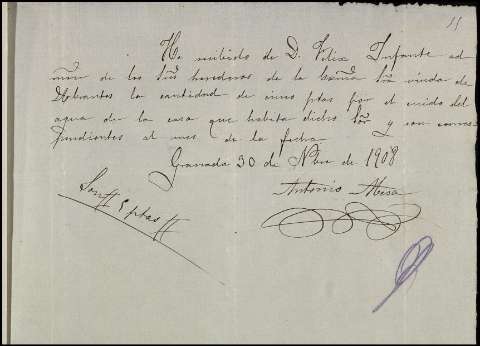 11
He recibido de D. Felix Infante ad-
món de los Sres herederos de la Exma Sra viuda de
Abrantes la cantidad de cinco ptas por el cuido del
agua de la casa que habita dicho Sor y son corres-
pondientes al mes de la fecha.
Granada 30 de Nbre de 1908
Antonio Mesa
Son 5 ptas